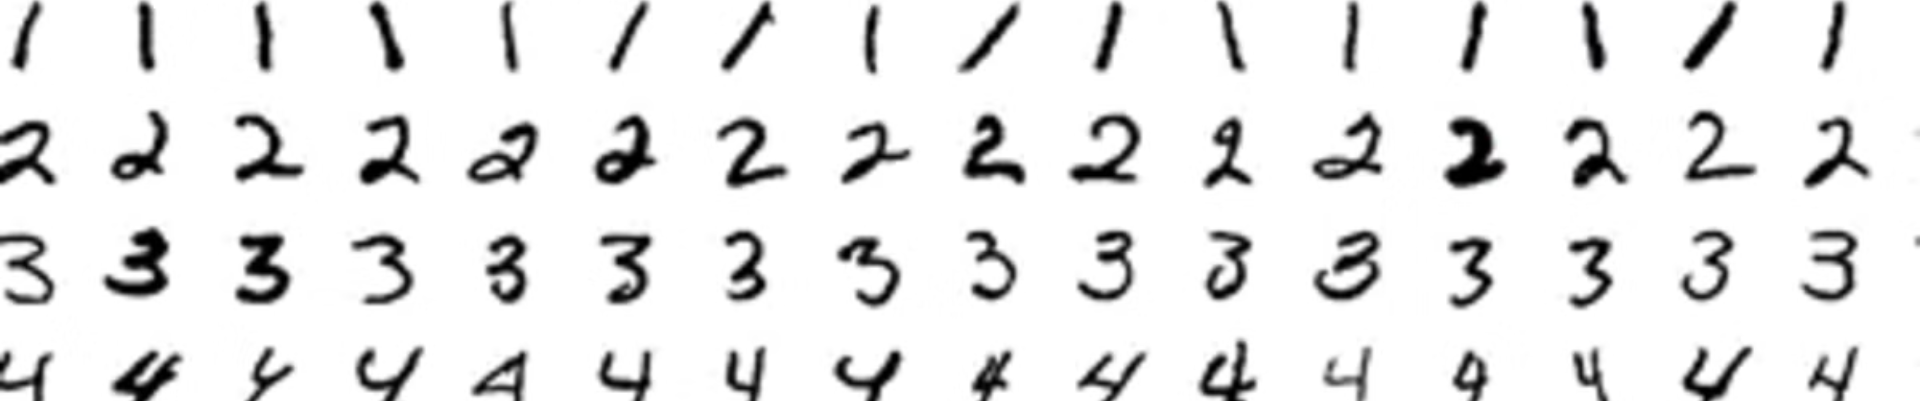 1 1 1 1 1 1 1 1 1 1 1 1 1 1 1 1
2 2 2 2 2 2 2 2 2 2 2 2 2 2 2 2
3 3 3 3 3 3 3 3 3 3 3 3 3 3 3 3
4 4 4 4 4 4 4 4 4 4 4 4 4 4 4 4